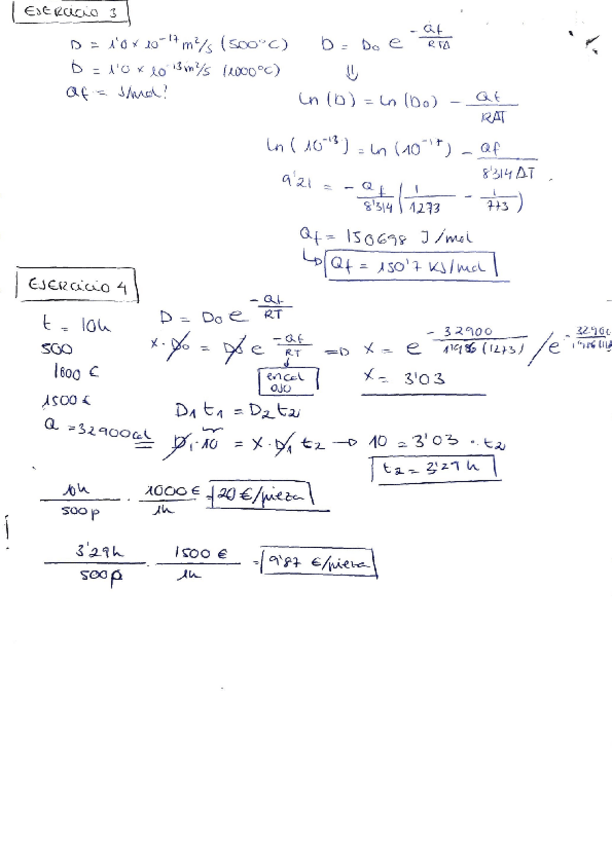 EJERCICIO 3
D = 1'0 × 10^-17 m²/s (500°C)
D = 1'0 × 10^-13 m²/s (1000°C)
Qf = J/mol?
D = D₀ e^(-Qf/RTΔ)
⇓
Ln(D) = Ln(D₀) - Qf/RΔT
Ln(10^-13) = Ln(10^-17) - Qf/8'314ΔT
9'21 = -Qf/8'314 (1/1273 - 1/773)
Qf = 150698 J/mol
↳ Qf = 150'7 KJ/mol
EJERCICIO 4
t = 10h
500
1000 €
1500 €
Q = 32900cal
D = D₀ e^(-Qf/RT)
x·D₀ = D₀ e^(-Qf/RT) => x = e^(-32900/1'986(1273)) / e^(-32900
en cal
ojo
x = 3'03
D₁t₁ = D₂t₂
D₁·10 = x·D₁ t₂ → 10 = 3'03 · t₂
t₂ = 3'29 h
10h/500p · 1000 €/1h = 20 €/pieza
3'29h/500p · 1500 €/1h = 9'87 €/pieza